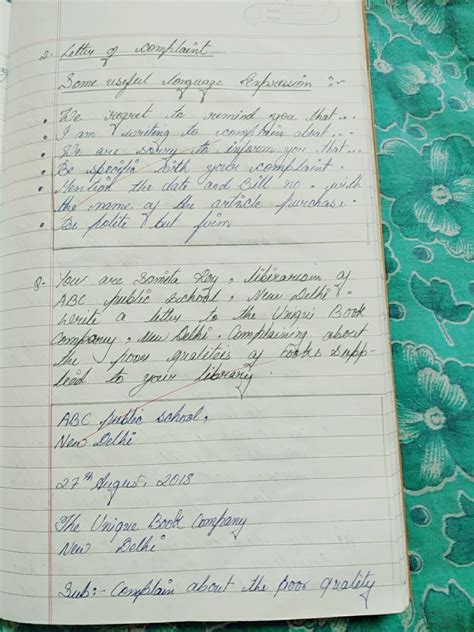 2. Letter of complaint
Some useful language Expression :-
• We regret to remind you that...
• I am writing to complain about...
• We are sorry to inform you that...
• Be specific with your complaint
• Mention the date and Bill no. with
the name of the article purchase.
• Be polite but firm
Q. You are Somita Roy, librarian of
ABC public school, New Delhi.
Write a letter to the Unique Book
Company, New Delhi. Complaining about
the poor qualities of books supp-
lied to your library.
ABC public school,
New Delhi
27th August, 2018
The Unique Book Company
New Delhi
Sub:- Complain about the poor quality